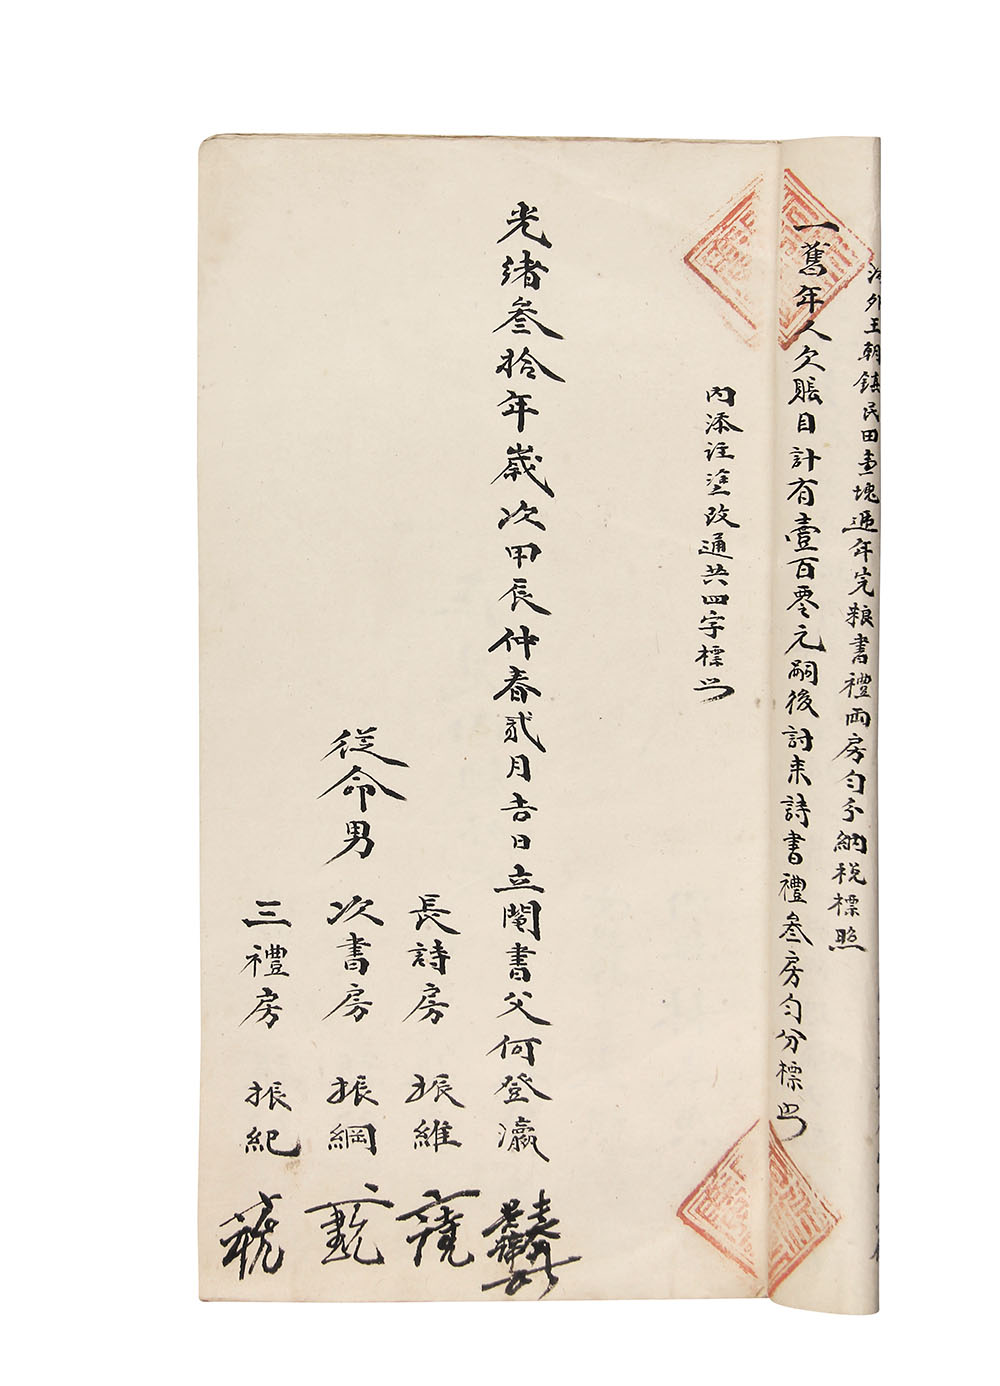 外王朝鎮民田壹塊遞年完粮書禮兩房勻分納税標照
一舊年人欠賬目計有壹百零元嗣後討來詩書禮叁房勻分標照
內添註塗改通共四字標照
光緒叁拾年歲次甲辰仲春貳月吉日立鬮書父何登瀛
從命男
長詩房 振維
次書房 振綱
三禮房 振紀